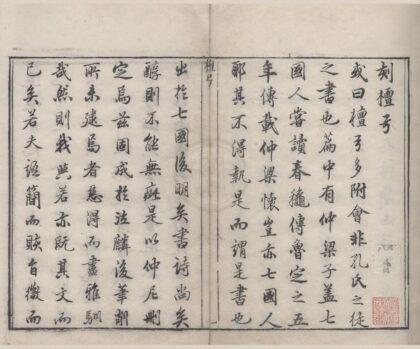 刻檀弓
或曰檀弓多附會非孔氏之徒
之書也篇中有仲梁子蓋七
國人嘗讀春龝傳魯定之五
年傳載仲梁懷豈亦七國人
耶其不得執是而謂是書也
檀弓
出於七國後明矣書詩尚矣
醇則不能無疵是以仲尼刪
定焉茲固成於泣麟後筆削
所未逮焉者惡得而盡雅馴
哉然則我與若亦玩其文而
已矣若夫簡而賅旨微而